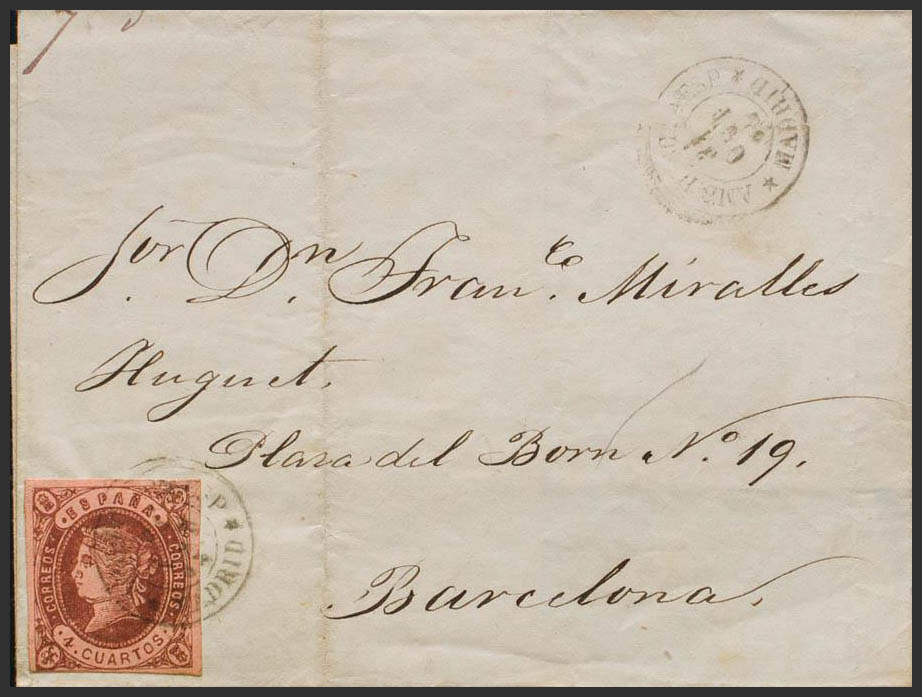 MADRID * AMB.
ESP *
Sor. Dn. Franco. Miralles
Huguet.
Plaza del Born No. 19.
ESP *
MADRID
ESPAÑA
CORREOS
CORREOS
4 CUARTOS
Barcelona.